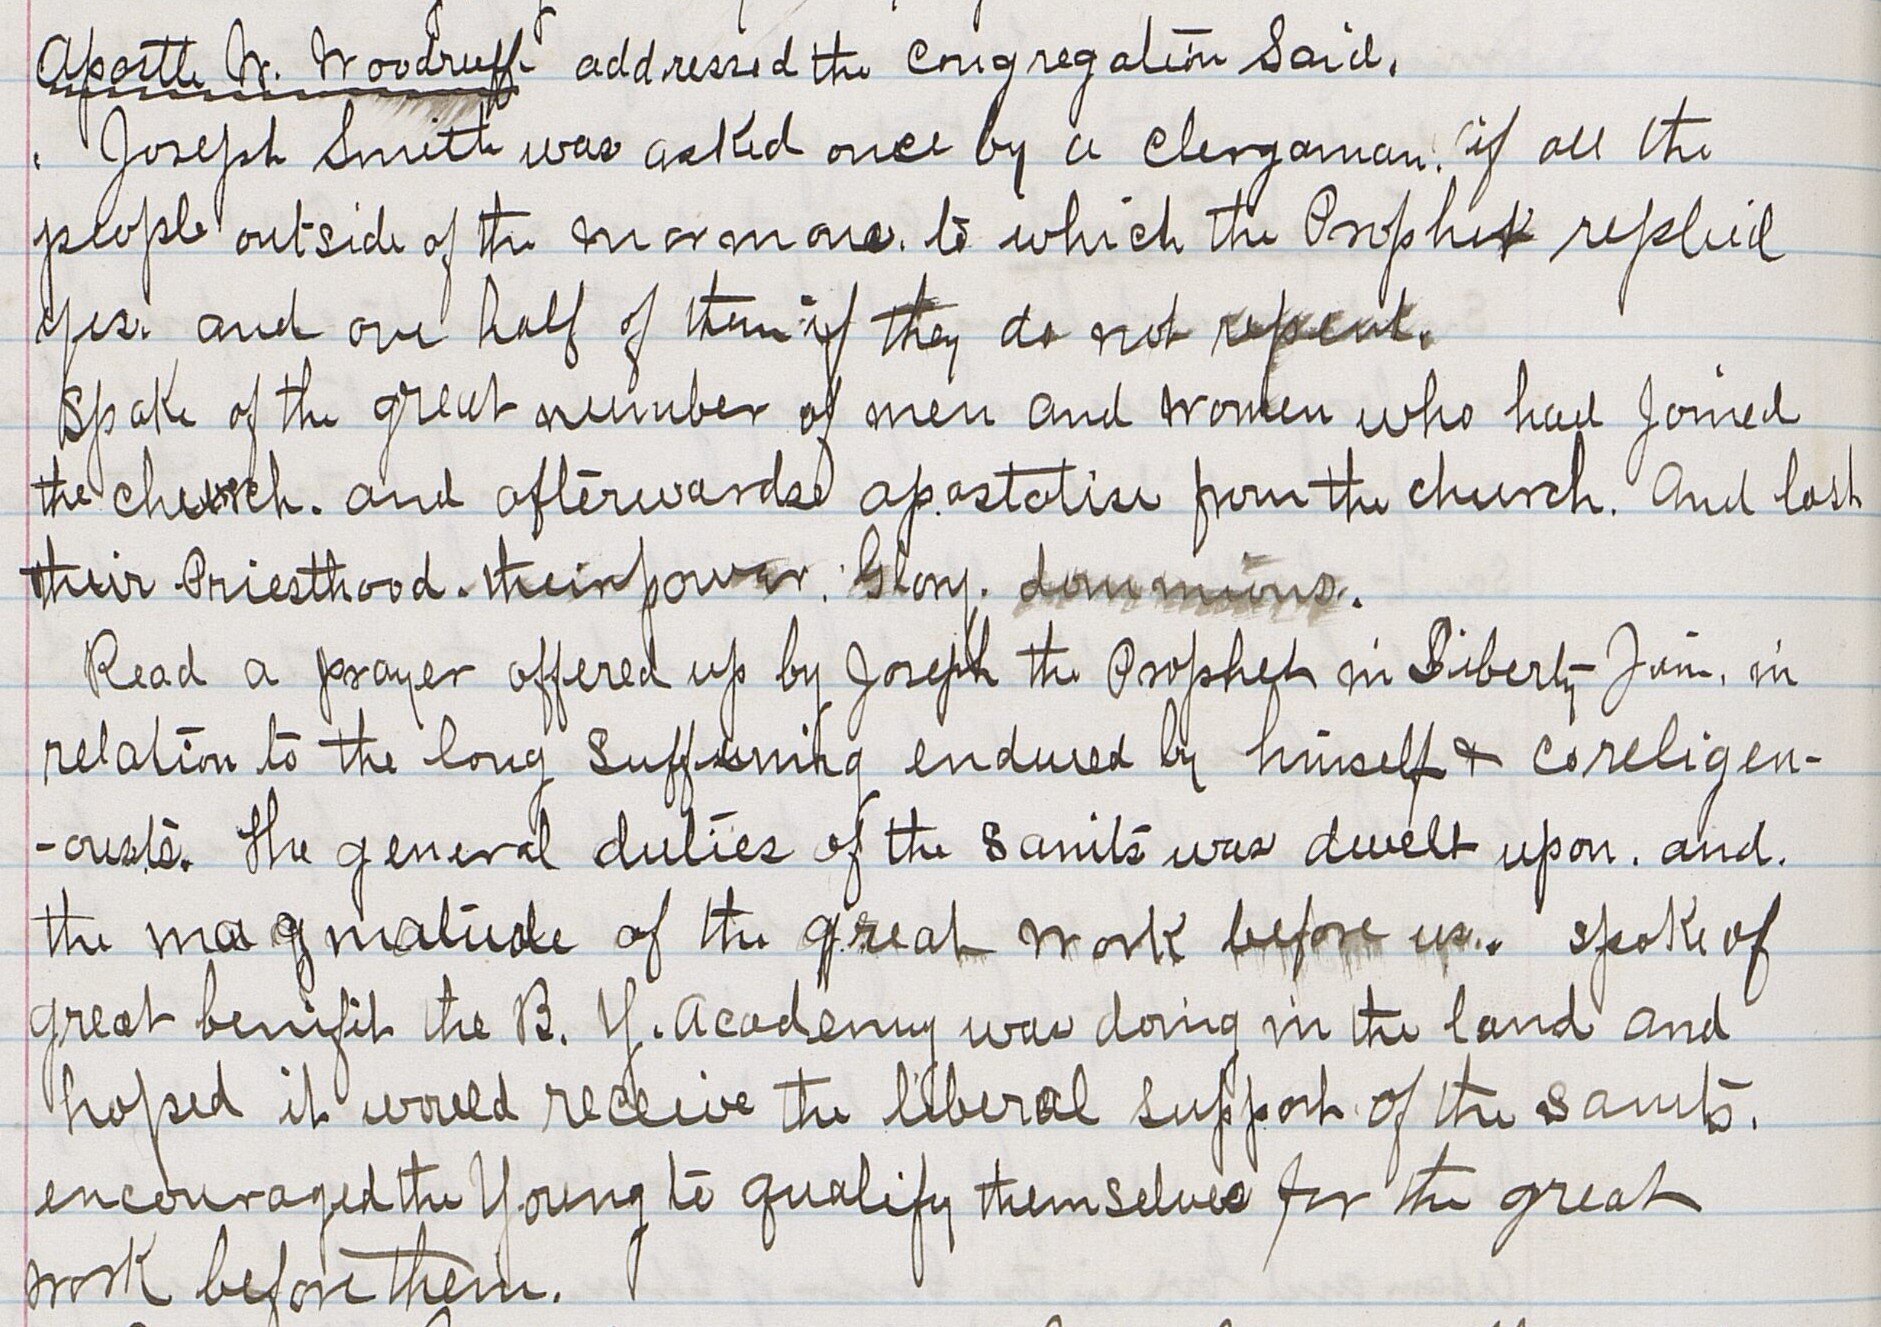 Apostle W. Woodruff addressed the Congregation Said.
Joseph Smith was asked once by a Clergaman. if all the
people outside of the mormons. to which the Prophet replied
yes. and one half of them if they do not repent.
Spake of the great number of men and women who had Joined
the church. and afterwards apostatise from the church. And lost
their Priesthood. their power. Glory. dominions.
Read a prayer offered up by Joseph the Prophet in Liberty Jail. in
relation to the long Suffering endured by himself & Coreligen-
-ousts. The general duties of the Saints was dwelt upon. and.
the magmatude of the great work before us. Spoke of
great benifit the B. Y. Academy was doing in the land and
hoped it would receive the liberal Support of the Saints.
encouraged the Young to qualify themselves for the great
work before them.